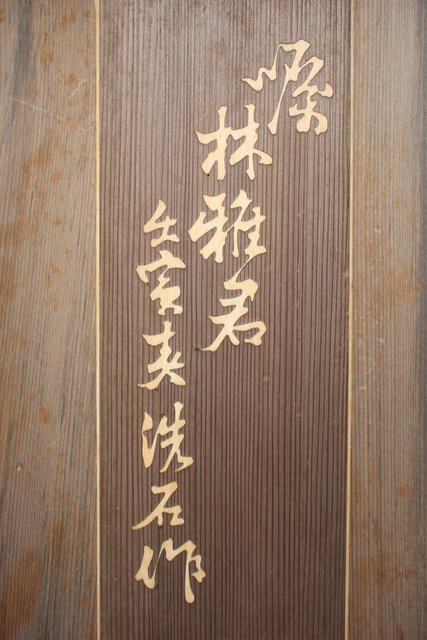 嘱
林雅君
壬寅春洗石作